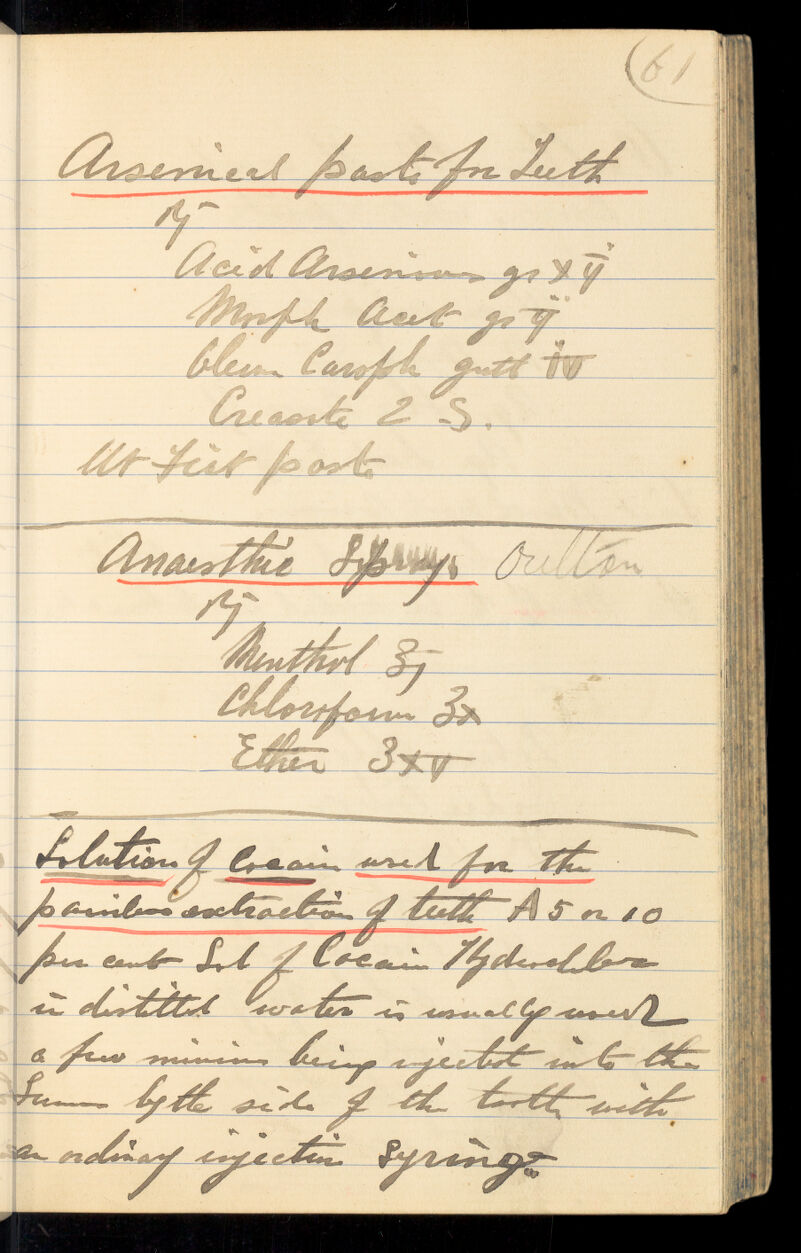 61
Arsenical paste for Teeth
℞
Acid Arsenious grs xij
Morph Acet grs ij
Oleum Caroph gutt iv
Creasote 2 S.
Ut Fiat paste
Anaesthic Spray Oulton
℞
Menthol ʒj
Chloroform ʒx
Ether ʒxv
Solution of Cocain used for the
painless extraction of teeth A 5 or 10
per cent Sol of Cocain Hydrochlor
in distilled water is usually used
a few minims being injected into the
Gums by the side of the tooth with
an ordinary injection Syringe